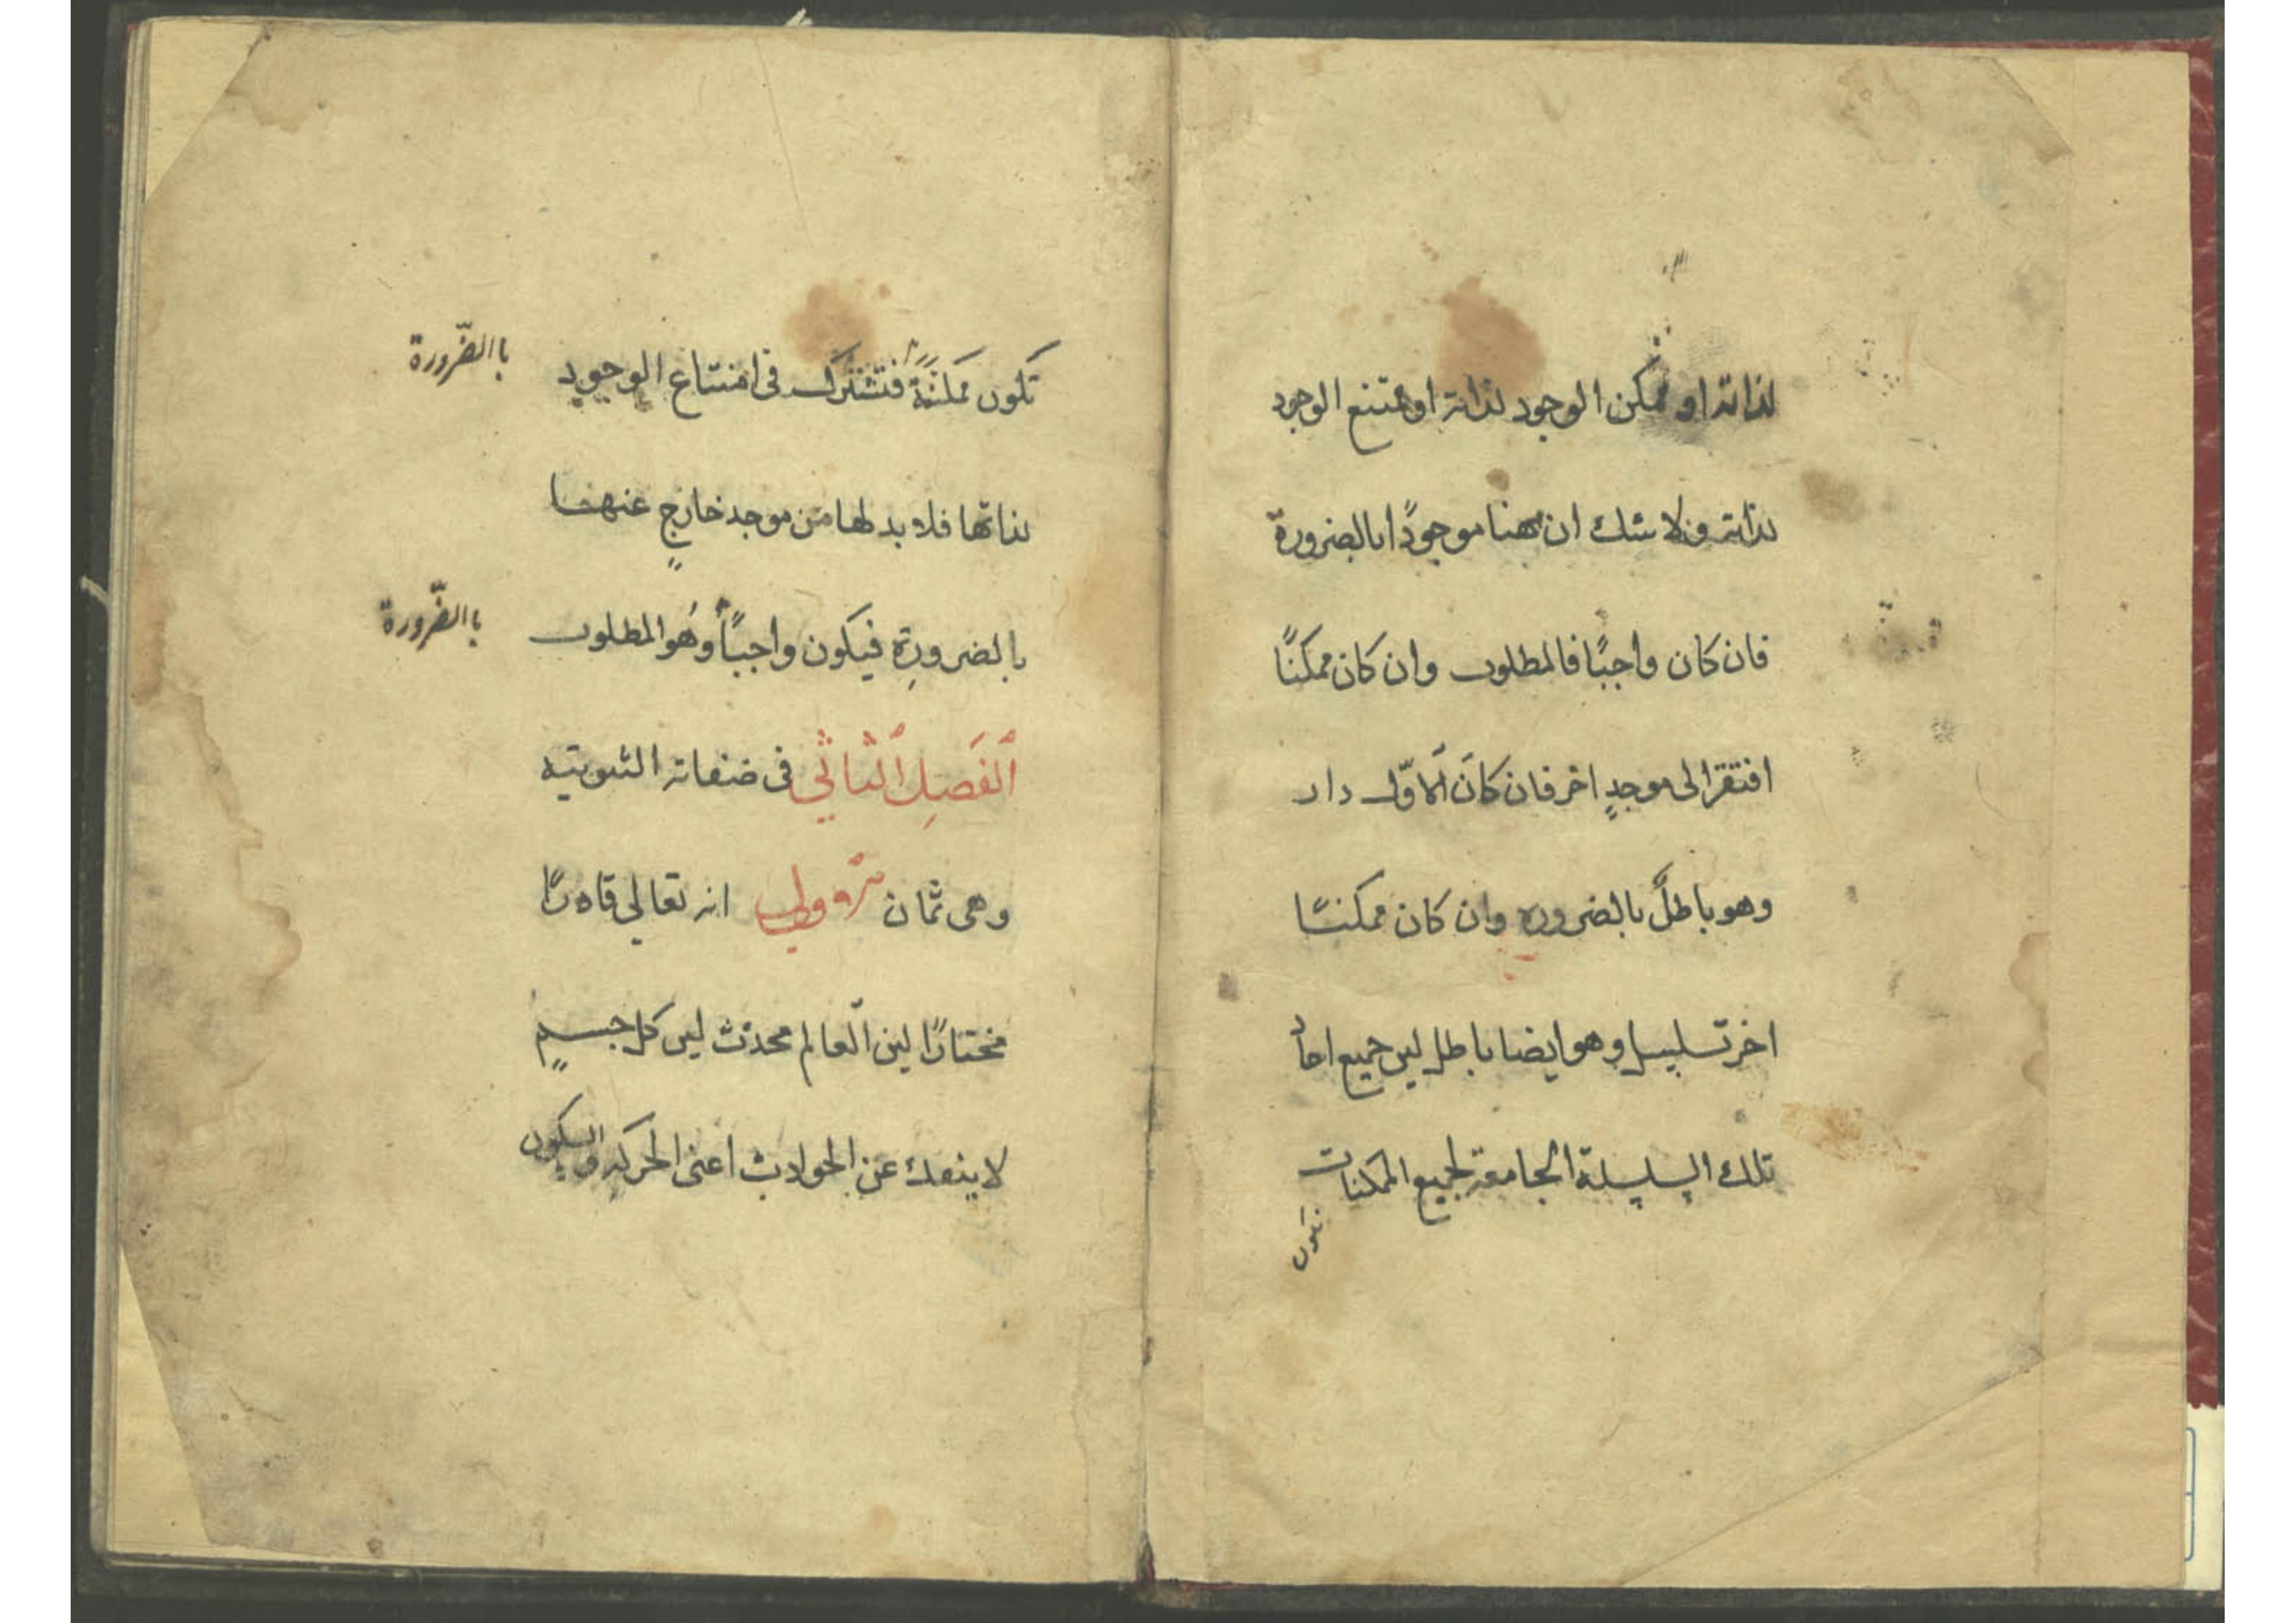 لذاته او ممكن الوجود لذاته او ممتنع الوجود
لذاته ولا شك ان هنا موجودًا بالضرورة
فان كان واجبًا فالمطلوب وان كان ممكنًا
افتقر الى موجدٍ اخر فان كانَ الاوّل دار
وهو باطلٌ بالضروره وان كان ممكنًا
اخر تسلسل وهو ايضا باطل لين جميع احاد
تلك السلسلة الجامعة لجميع الممكنات
تكون
تكون ممكنةً فتشترك فى امتناع الوجود
باالضّرورة
لذاتها فلا بد لها من موجد خارجٍ عنها
بالضرورةِ فيكون واجبًا وهُو المطلوب
باالضّرورة
الفَصلِ الثاني فى صفاته الثبوتيه
وهى ثمان انه تعالى قادرًا
مختارًا لين العالم محدث لين كل جسمٍ
لا ينفك عن الحوادث اعنى الحركه والسكون